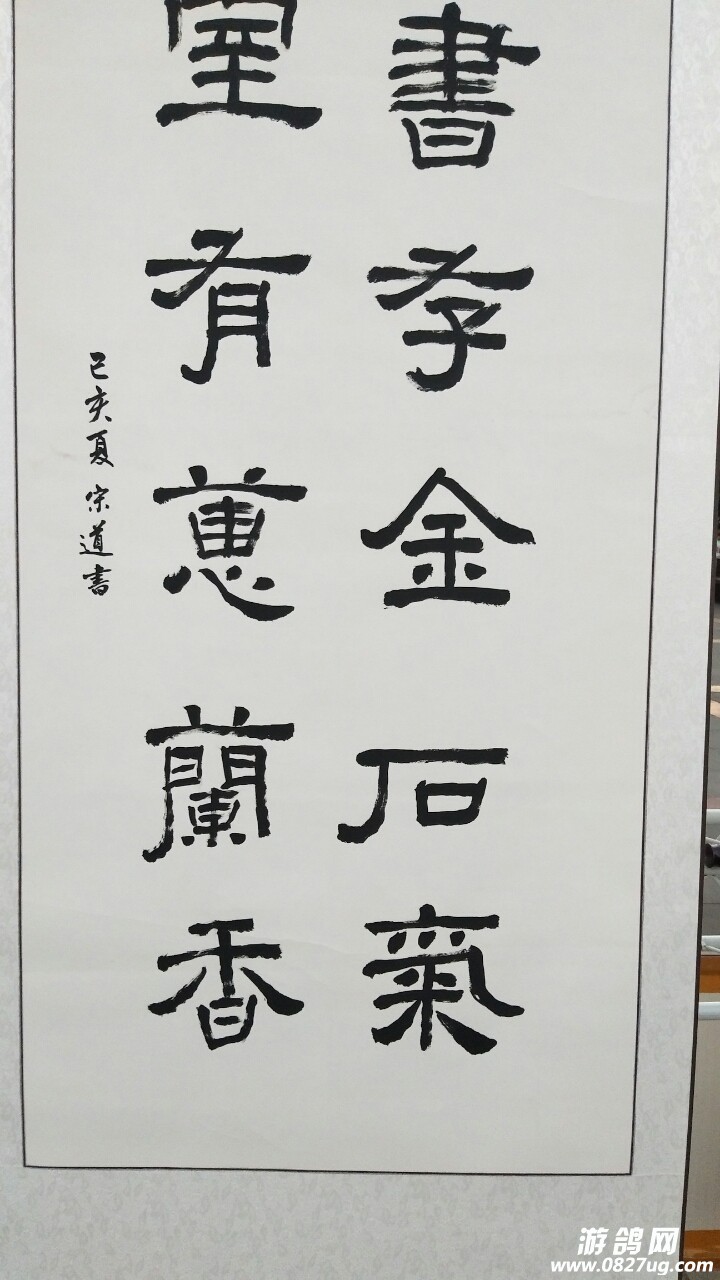 書存金石氣
室有蕙蘭香
己亥夏 宗道書
游鸽网
www.0827ug.com